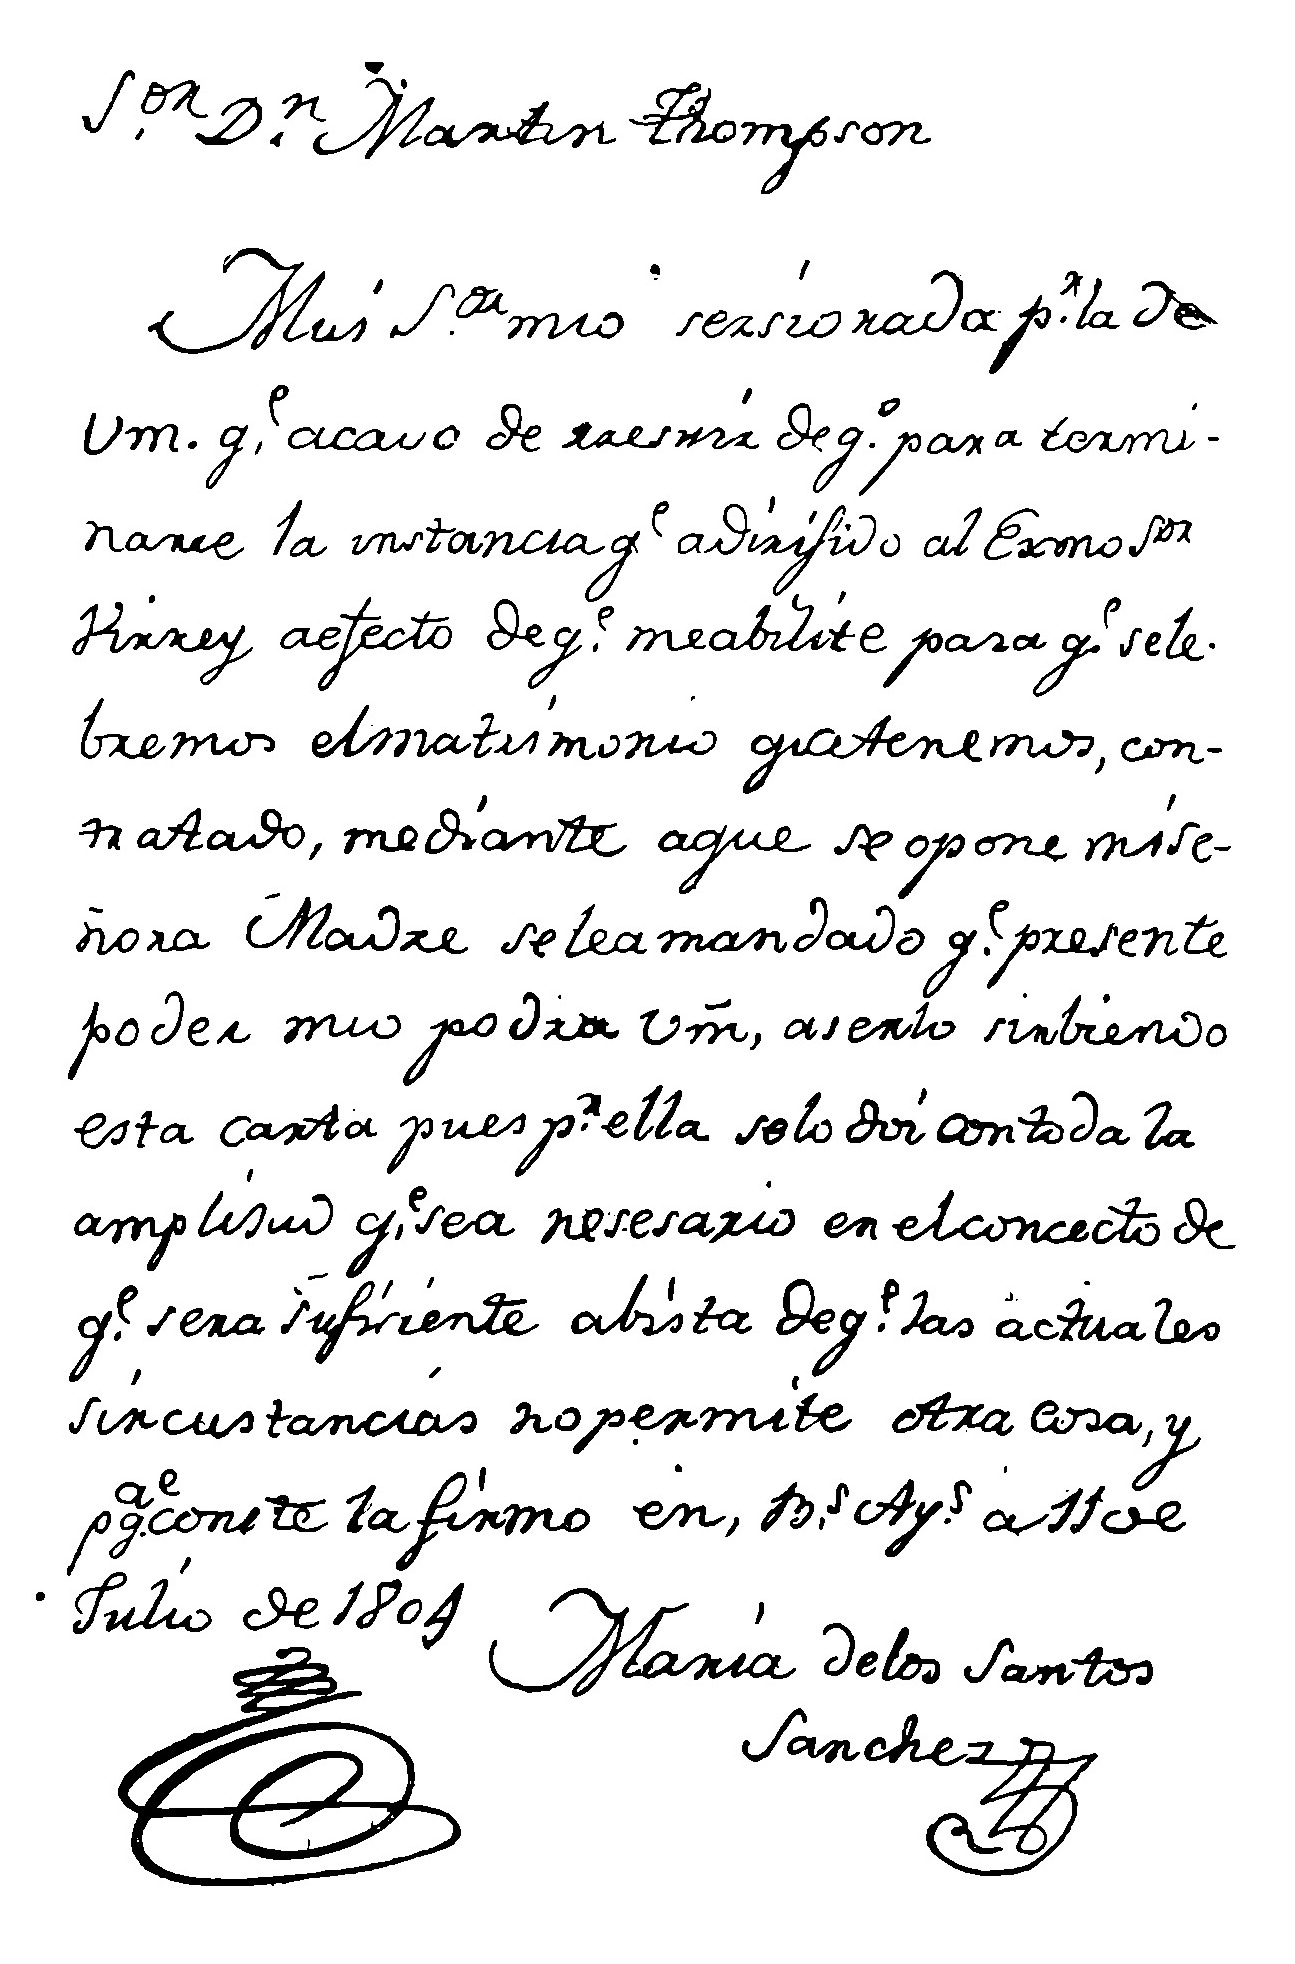 S.or D.n Martin Thompson
Mui S.or mio sersiorada p.r la de
Um. q.e acavo de resivir de q.e para termi-
narse la instancia q.e a dirijido al Exmo Sor
Virrey aefecto de q.e meabilite para q.e sele-
bremos elmatrimonio quetenemos, con-
tratado, mediante aque se opone mi se-
ñora Madre seleamandado q.e presente
poder mio podra Um, aserlo sirbiendo
esta carta pues p.r ella selo doi contoda la
amplitud q.e sea nesesario en elconcecto de
q.e sera sufisiente abista de q.e las actuales
sircustancias nopermite otra cosa, y
pa q.e conste la firmo en, B.s Ay.s a 11 de
Julio de 1804
Maria delos Santos
Sanchez